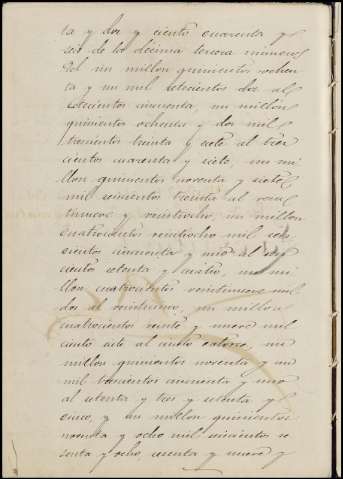 ta y dos y ciento cuarenta y
seis de la decima tercera numeros
del un millon quinientos ochen
ta y un mil setecientos dos al
setecientos cincuenta, un millon
quinientos ochenta y dos mil
trescientos treinta y siete al tres
cientos cuarenta y siete, un mi
llon quinientos noventa y siete
mil seiscientos treinta al seis
cientos y veintiocho, un millon
cuatrocientos veintiocho mil
cientos cincuenta y uno al
ciento setenta y cuatro, un mi
llon cuatrocientos veintinueve mil
dos al veintiuno, un millon
cuatrocientos veinte y nueve mil
ciento siete al ciento catorce, un
millon quinientos noventa y un
mil trescientos cuarenta y uno
al setenta y tres y setenta y
cinco, y un millon quinientos
noventa y ocho mil seiscientos se
senta y ocho, sesenta y nueve y